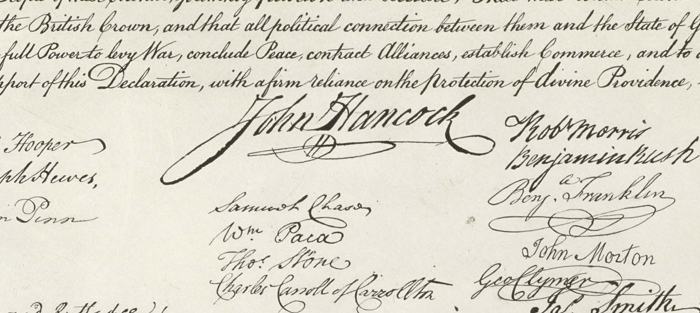 the British Crown, and that all political connection between them and the State of
full Power to levy War, conclude Peace, contract Alliances, establish Commerce, and to
of this Declaration, with a firm reliance on the protection of divine Providence,
John Hancock
Hooper
Hewes,
Penn
Samuel Chase
Wm Paca
Thos. Stone
Charles Carroll of Carrollton
Robt Morris
Benjamin Rush
Benja. Franklin
John Morton
Geo Clymer
Jas. Smith